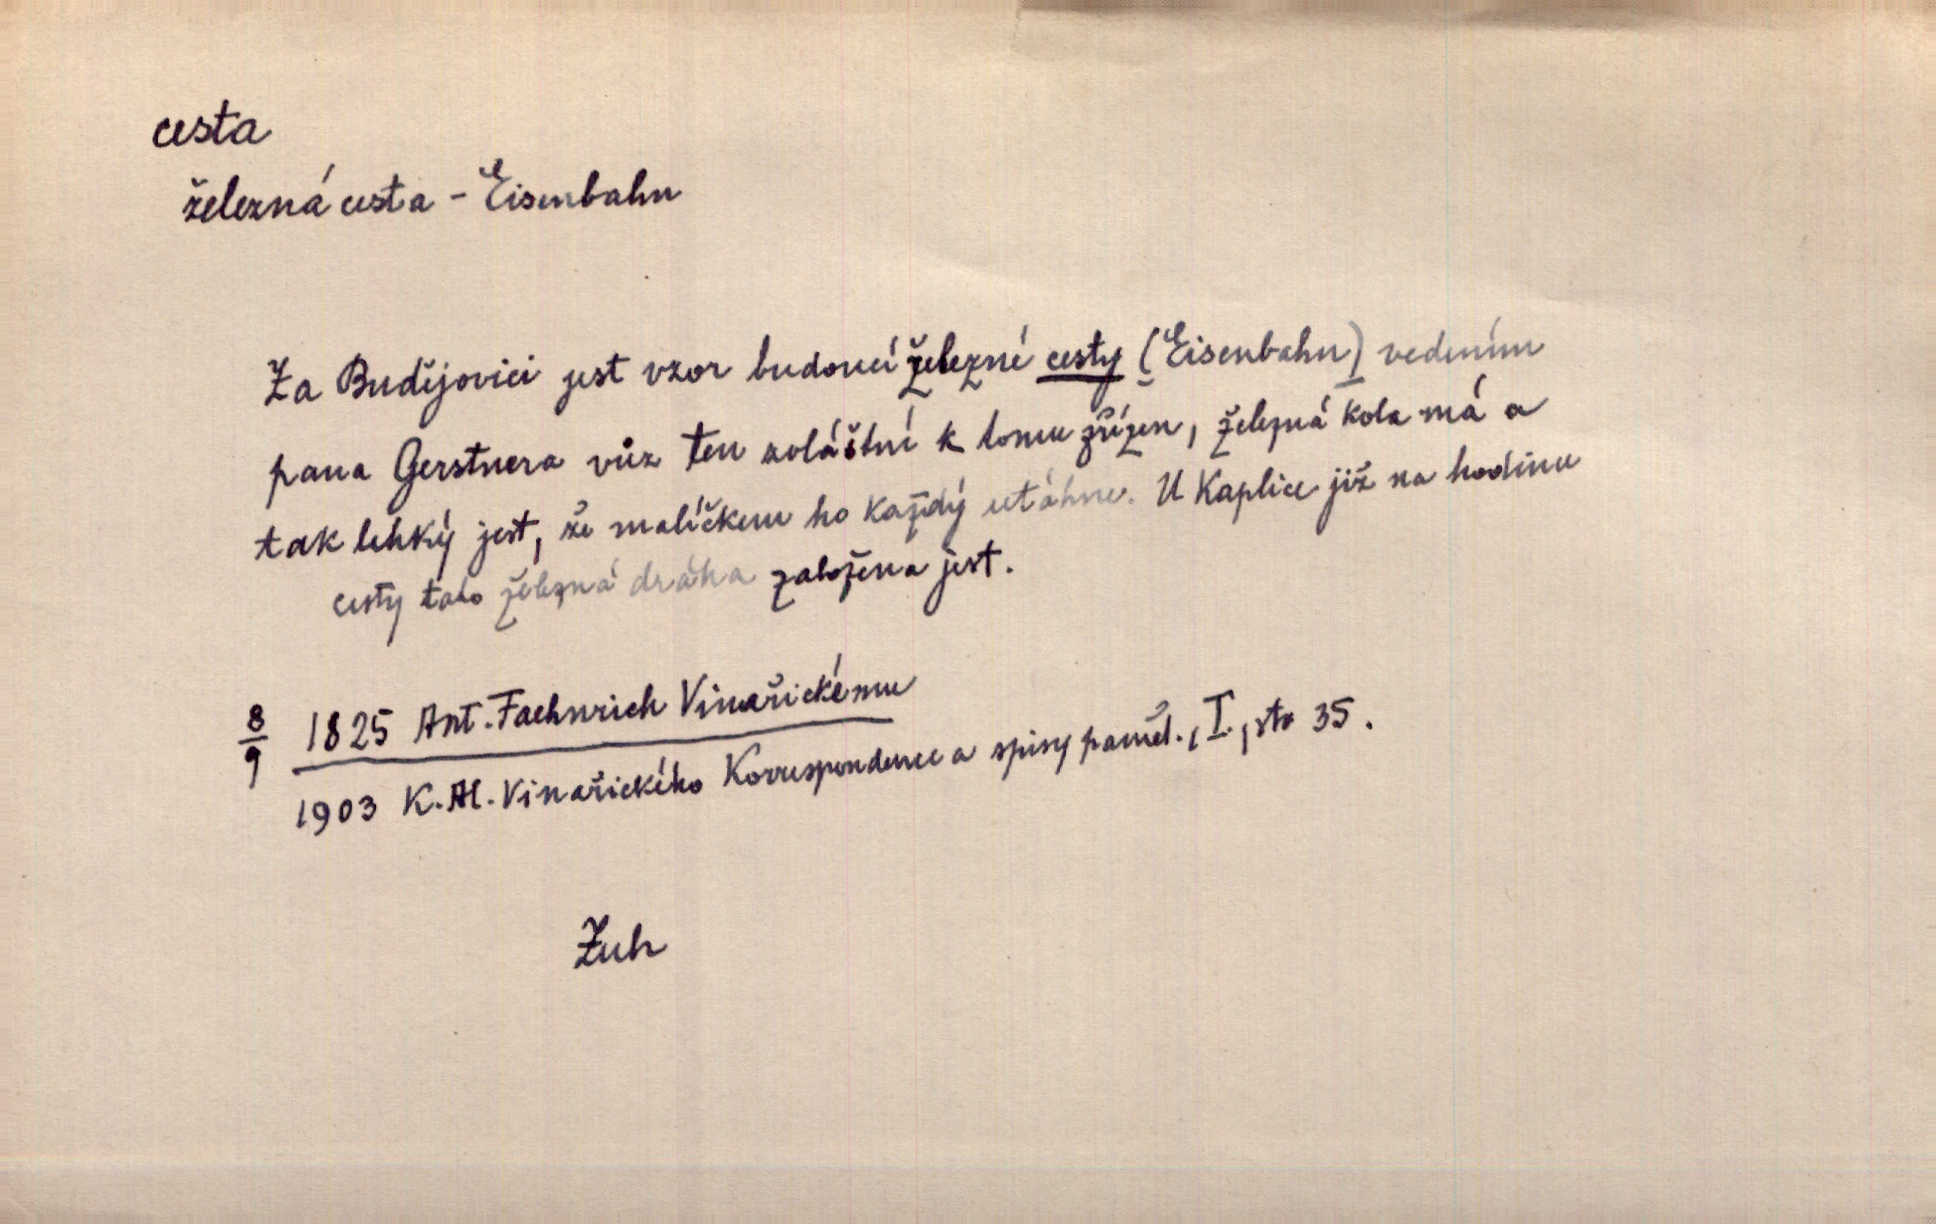 cesta
železná cesta - Eisenbahn
Za Budějovici jest vzor budoucí železné cesty (Eisenbahn) vedením
pana Gerstnera vůz ten zvláštní k tomu zřízen, železná kola má a
tak lehký jest, že malíčkem ho každý utáhne. U Kaplice již na hodinu
cesty tato železná dráha založena jest.
8/9 1825 Ant. Faehnrich Vinařickému
1903 K. Al. Vinařického Korrespondence a spisy pamět., I., str 35.
Zuh